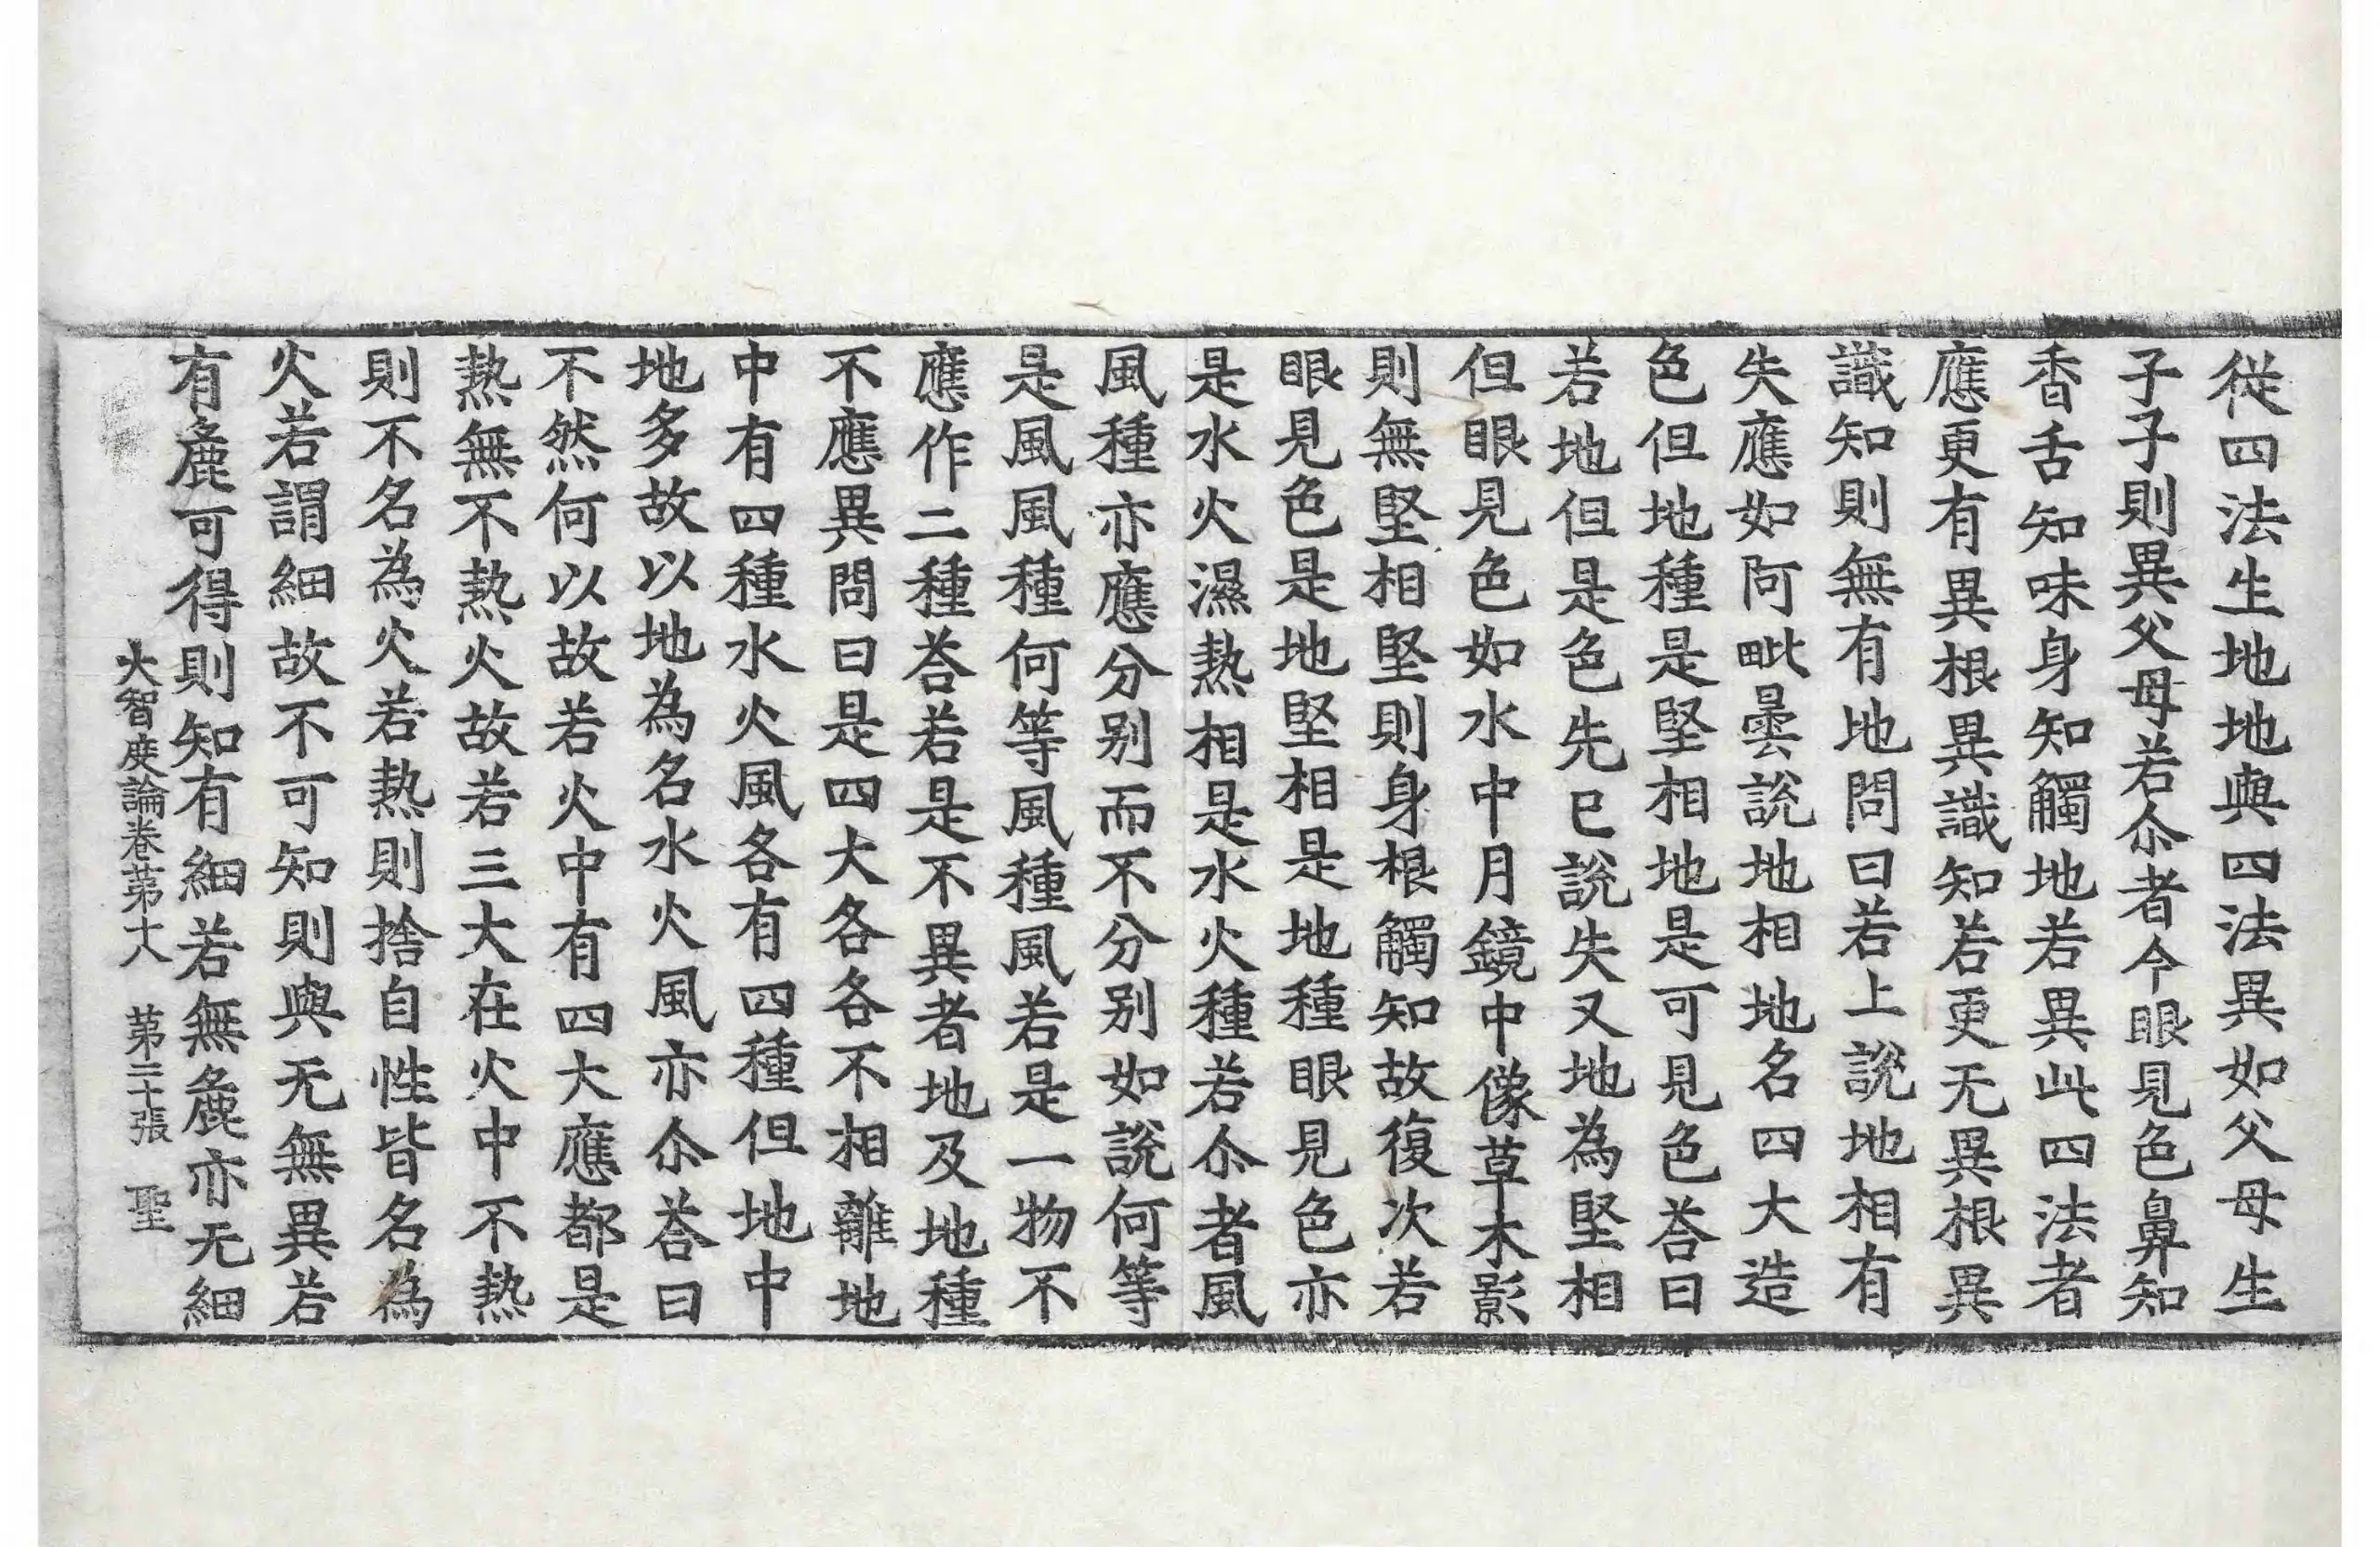 従四法生地地與四法異如父母生
子子則異父母若尒者今眼見色鼻知
香舌知味身知觸地若異此四法者
應更有異根異識知若更无異根異
識知則無有地問曰若上說地相有
失應如阿毗曇說地相地名四大造
色但地種是堅相地是可見色荅曰
若地但是色先已說失又地為堅相
但眼見色如水中月鏡中像草木影
則無堅相堅則身根觸知故復次若
眼見色是地堅相是地種眼見色亦
是水火濕熱相是水火種若尒者風
風種亦應分别而不分别如說何等
是風風種何等風種風若是一物不
應作二種荅若是不異者地及地種
不應異問曰是四大各各不相離地
中有四種水火風各有四種但地中
地多故以地為名水火風亦尒荅曰
不然何以故若火中有四大應都是
熱無不熱火故若三大在火中不熱
則不名為火若熱則捨自性皆名為
火若謂細故不可知則與无無異若
有麁可得則知有細若無麁亦无細
大智度論卷第十八 第二十張 聖